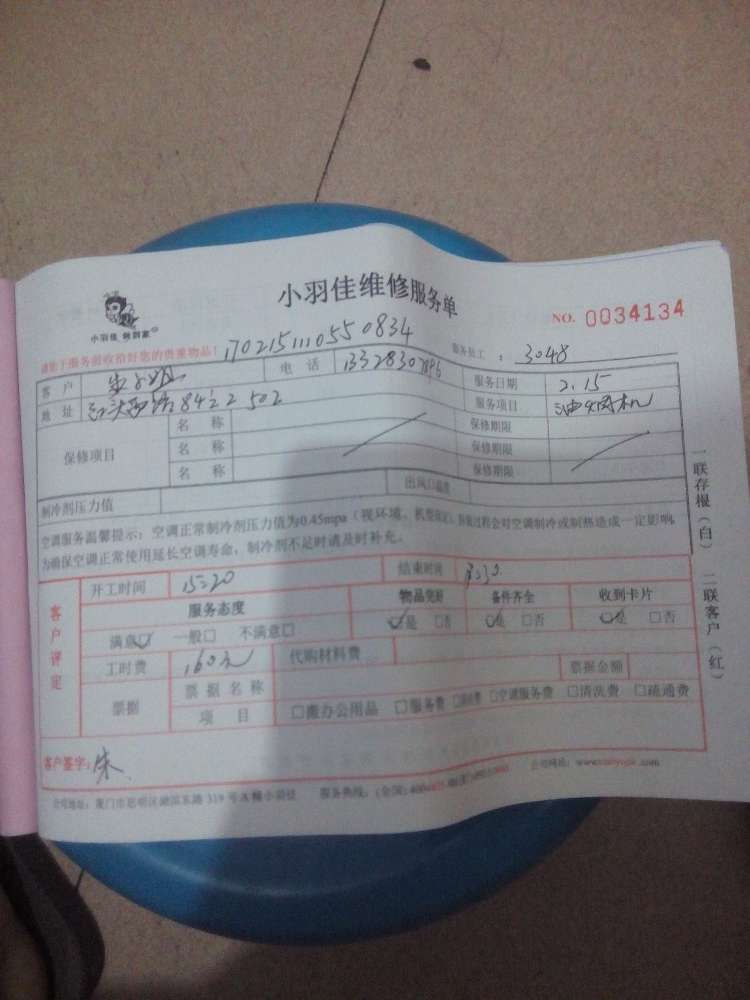 小羽佳维修服务单
小羽佳 俠到家
NO. 0034134
请您于服务前收拾好您的贵重物品!
170215111055 0834
服务员工: 3048
客户 朱小姐 电话 服务日期 2.15
地址 842 2 502 服务项目 油烟机
保修项目 名称 保修期限
名称 保修期限
名称 保修期限
制冷剂压力值 出风口温度
空调服务温馨提示:空调正常制冷剂压力值为0.45mpa(视环境、机型而定),拆装过程会对空调制冷或制热造成一定影响,
为确保空调正常使用延长空调寿命,制冷剂不足时请及时补充。
客户评定
开工时间 15:20 结束时间
服务态度 物品完好 备件齐全 收到卡片
满意☑ 一般□ 不满意□ ☑是 □否 ☑是 □否 ☑是 □否
工时费 160元 代购材料费
票据 票据名称 票据金额
项目 □搬办公用品 □服务费 □空调服务费 □清洗费 □疏通费
客户签字: 朱
公司地址:厦门市思明区湖滨东路 319 号A幢小羽佳 服务热线:(全国)
公司网址:www.xiaoyujia.com
一联存根(白) 二联客户(红)